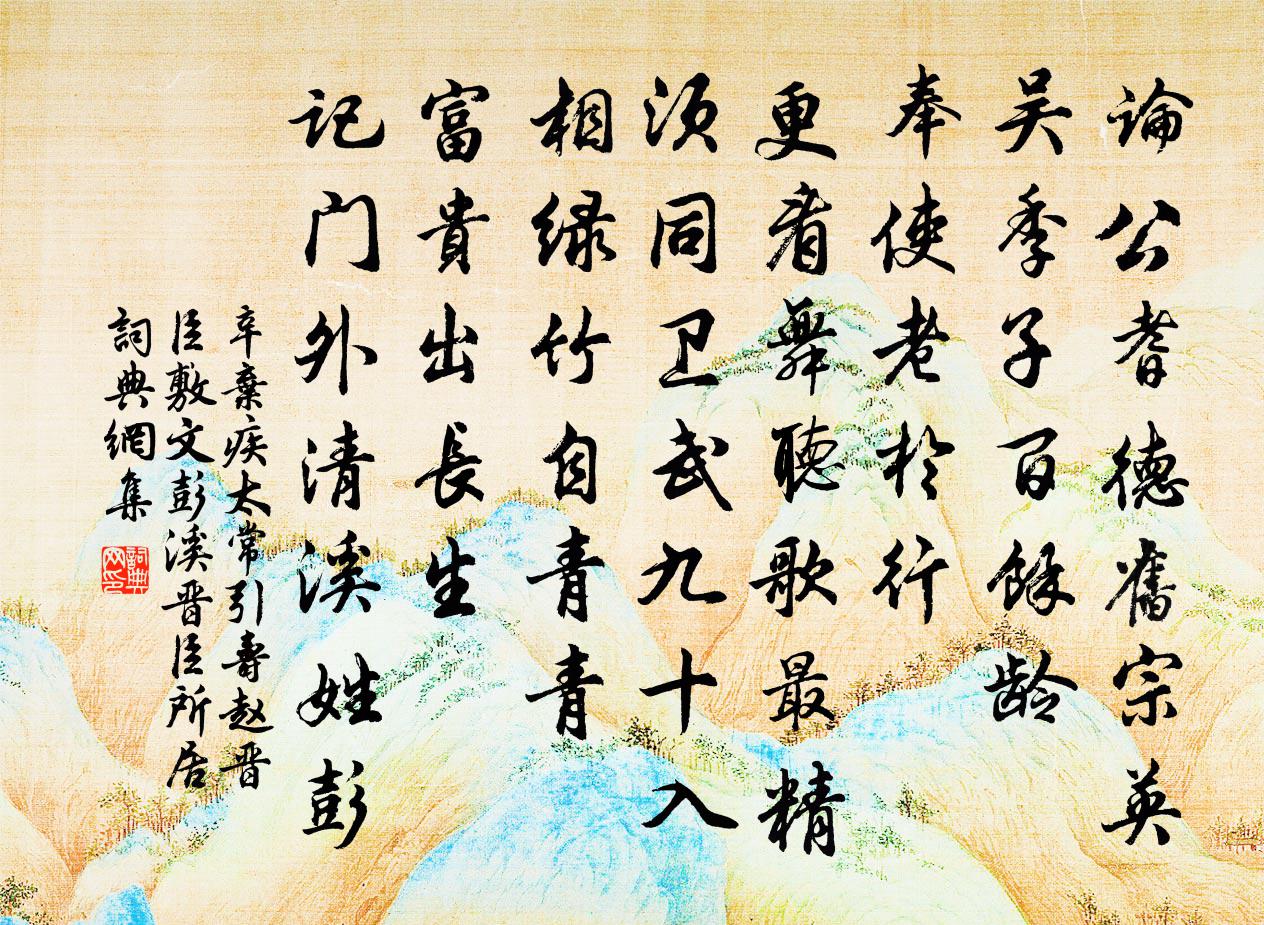 論公耆德舊宗英
吴季子百餘龄
奉使老於行
更看舞聽歌最精
须同卫武九十入
相绿竹自青青
富貴出長生
记门外清溪姓彭
辛棄疾太常引壽赵晋
臣敷文彭溪晋臣所居
詞典網集
詞典网印